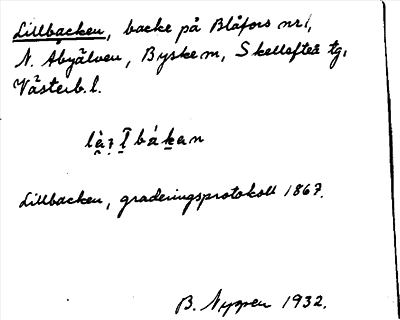 Lillbacken, backe på Blåfors nr 1,
N. Åbyälven, Byske sn, Skellefteå tg,
Västerb. l.
Lillbacken, graderingsprotokoll 1867.
B. Nygren 1932.